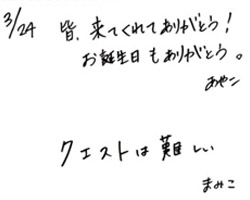 3/24 皆、来てくれてありがとう!
お誕生日もありがとう。
あやこ
クエストは難しい
まみこ